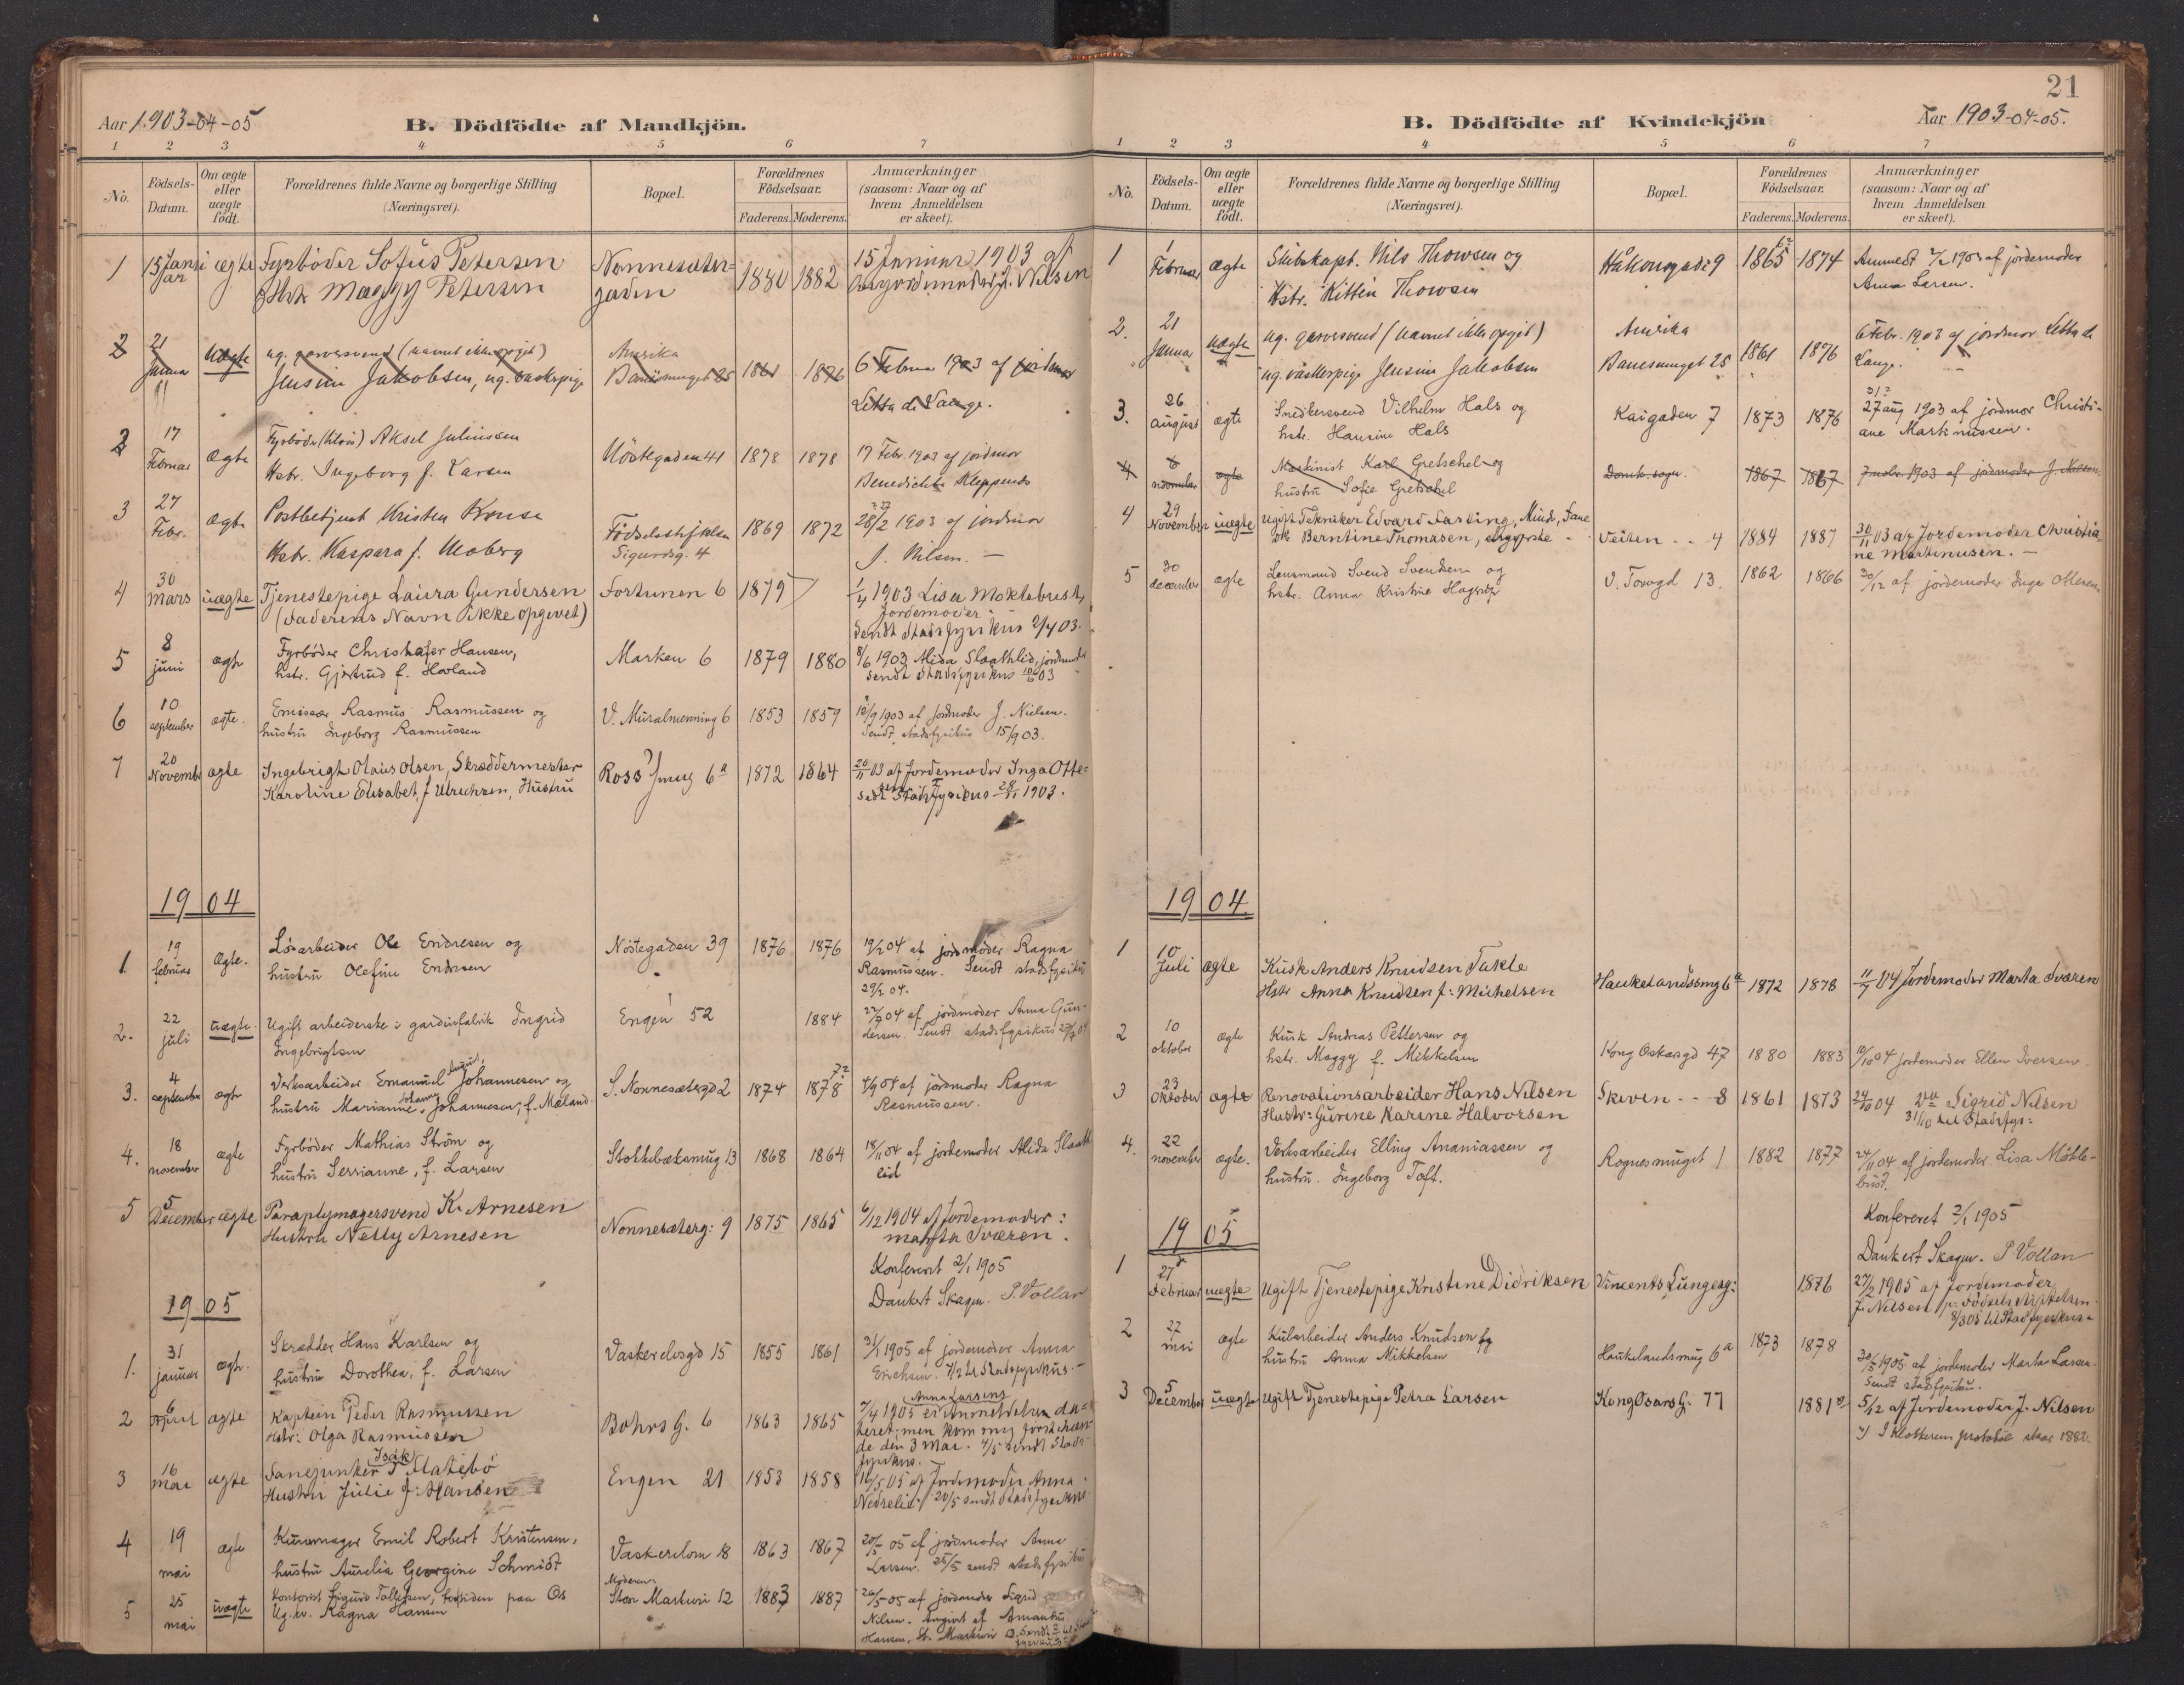 Aar 1903-04-05
B. Dödfödte af Mandkjön.
1 2 3 4 5 6 7
No.
Födsels-Datum.
Om ægte eller uægte födt.
Forældrenes fulde Navne og borgerlige Stilling (Næringsvei).
Bopæl.
Forældrenes Födselsaar.
Faderens. Moderens.
Anmærkninger (saasom: Naar og af hvem Anmeldelsen er skeet).
1 15 Januar ægte Fyrböder Sofus Petersen Nonnesæter- 1880 1882 15 Januar 1903 af
Hst. Maggy Petersen gaden jordemoder J. Nilsen
2 21 Januar uægte ug. garversvend (navnet ikke opgit) Amerika
Jensine Jakobsen, ug. væskerpige 25 1861 1876 6 Februar 1903 af jordmor
Letta de Lange.
2 17 Februar ægte Fyrböder Aksel Juliussen Nöstegaden 41 1878 1878 17 Febr. 1903 af jordmor
Hstr. Ingeborg f. Larsen Benedichte Kleppenes
3 27 Febr. ægte Postbetjent Kristen Krouse Födselsstiftelsen 1869 1872 28/2 1903 af jordmor
Hstr. Kaspara f. Moberg Sigurdsg. 4 J. Nilsen. —
4 30 Mars uægte Tjenestepige Laura Gundersen Fortunen 6 1879 1/4 1903 Lisa Moklebust,
(Faderens Navn ikke opgivet) Jordemoder
Sendt Stadsfysikus 2/4 03.
5 8 juni ægte Fyrböder Christofer Hansen, Marken 6 1879 1880 8/6 1903 Alida Slaatlid, jordmoder
hstr. Gjertrud f. Hovland sendt stadsfysikus 10/6 03
6 10 september ægte. Emissær Rasmus Rasmussen og V. Muralmenning 6 1853 1859 12/9 1903 af jordmoder J. Nielsen.
hustru Ingeborg Rasmussen Sendt stadsfysikus 15/9 03.
7 20 Novembr ægte Ingebrigt Olaus Olsen, Skræddermester Ross' Smug 6a 1872 1864 20/11 03 af Jordemoder Inga Otte-
Karoline Elisabet, f Ulrichsen, Hustru Stadsfysikus 28/11 1903.
1904
1. 19 februar ægte. Løsarbeider Ole Endresen og Nöstegaden 39 1876 1876 19/2 04 af jordmoder Ragna
hustru Olefine Endresen Rasmussen. Sendt stadsfysikus
29/2 04.
2. 22 juli uægte. Ugift arbeiderske i gardinfabrik Ingrid Engen 52 1884 27/7 04 af jordmoder Anna Gun-
Ingebrigtsen dersen. Sendt stadsfysikus 29/7 04
3. 4 september ægte Verksarbeider Emanuel Johannesen og S. Nonnesætergd 2 1874 1878 4/9 04 af jordmoder Ragna
hustru Marianne Johanne Johannesen, f. Mæland Rasmussen.
4. 18 november ægte Fyrböder Mathias Ström og Stokkebæksmug 13 1868 1864 18/11 04 af jordemoder Alida Slaatt
hustru Serrianne, f. Larsen lid
5 5 December ægte Paraplymagersvend K. Arnesen Nonnesæterg: 9 1875 1865 6/12 1904 af Jordemoder:
Hustru Nelly Arnesen Marta Sværen.
Konfereret 2/1 1905
Dankert Skagen. P. Vollan
1905
1. 31 januar ægte. Skrædder Hans Karlsen og Vaskerelvsgd 15 1855 1861 31/1 1905 af jordemoder Anna
hustru Dorothea, f. Larsen Erichsen. 7/2 til Stadsfysikus. —
2 6 April ægte Kaptein Peder Rasmussen Bohrs G. 6 1863 1865 7/4 1905 er Anna Larsens Anmeldelse da-
Hstr: Olga Rasmussen teret; men kom mig först ihæn-
de den 3 Mai. 4/5 sendt Stads-
fysikus. —
3 16 Mai ægte Sanepunker Isak Slatebö Engen 21 1853 1858 16/5 05 af Jordemoder Anna
Hustru Julie f: Hansen Nedrelid. 20/5 sendt Stadsfysikus
4 19 mai ægte Kurvmager Emil Robert Kristensen, Vaskerelven 18 1863 1867 20/5 05 af jordmoder Anna
hustru Aurelia Georgine Schmidt Larsen. 25/5 sendt stadsfysikus
5 25 mai uægte Kontorist Sigurd Tollefsen, paa Os Moderen: Store Markvei 12 1883 1887 26/5 05 af jordmoder Sigrid
Ug. kv. Ragna Hansen Nilsen. Angivet af Amandus
Hansen, St. Markvei
21
B. Dödfödte af Kvindekjön
Aar 1903-04-05.
1 2 3 4 5 6 7
No.
Födsels-Datum.
Om ægte eller uægte födt.
Forældrenes fulde Navne og borgerlige Stilling (Næringsvei).
Bopæl.
Forældrenes Födselsaar.
Faderens. Moderens.
Anmærkninger (saasom: Naar og af hvem Anmeldelsen er skeet).
1 1 Februar ægte Skibskapt. Nils Thowsen og Håkonsgade 9 1865 1874 Anmeldt 7/2 1903 af jordemoder
Hstr. Kitten Thowsen Anna Larsen.
2. 21 Januar uægte ug. garversvend (navnet ikke opgit) Amerika 1861 1876 6 Febr. 1903 af jordmor Letta de
ug. væskerpige Jensine Jakobsen 25 Lange.
3. 26 august ægte Snedkersvend Vilhelm Hals og Kaigaden 7 1873 1876 27 aug 1903 af jordmor Christi-
hstr. Hansine Hals ane Martinussen.
4 6 november ægte Maskinist Karl Gretschel og Domk. sogn. 1867 1867 7 nobr. 1903 af jordmoder J. Nilsen.
hustru Sofie Gretschel
4 29 November uægte Ugift Tekniker Edvard Fasting, Minde, Fane Veiten - - 4 1884 1887 30/11 03 af Jordemoder Christia-
Berntine Thomasen, ne Martinusen. —
5 30 december ægte Lensmand Svend Svendsen og V. Torvgd 13. 1862 1866 30/12 af jordemoder Inga Ottesen
hstr. Anna Kristine
1904
1 10 Juli ægte Kusk Anders Knudsen Takle Haukelandssmg 6a 1872 1878 11/7 04 Jordemoder Marta Sværen
Hstr Anna Knudsen f: Michelsen
2 10 oktober ægte Kusk Andreas Pettersen og Kong Oskarsgd 47 1880 1883 10/10 04 jordemoder Ellen Iversen.
hstr. Maggy f. Mikkelsen
3 23 Oktober ægte Renovationsarbeider Hans Nilsen Skiven - - 8 1861 1873 24/10 04 Sigrid Nilsen
Hustr: Gurine Karine Halvorsen 31/10 til Stadsfys:
4. 22 november ægte. Verksarbeider Elling Ananiassen og Rognesmuget 1 1882 1877 24/11 04 af jordemoder Lisa Mökle-
hustru. Ingeborg Toft. bust.
Konfereret 2/1 1905
Dankert Skagen. P. Vollan
1905
1 27 Februar uægte Ugift Tjenestepige Kristine Didriksen Vincents Lungesg: 1876 27/2 1905 af Jordemoder
J. Nilsen p: Födselsstiftelsen
8/3 05 til Stadfysikus
2 27 mai ægte Kularbeider Anders Knudsen og Haukelandsmug 6a 1873 1878 30/5 1905 af jordemoder Marta Larsen.
hustru Anna Mikkelsen Sendt stadsfysikus.
3 5 December uægte Ugift Tjenestepige Petra Larsen Kong Osars G. 77 1881 5/12 af Jordemoder J. Nilsen
I Klokkerens protokol staar 1882.